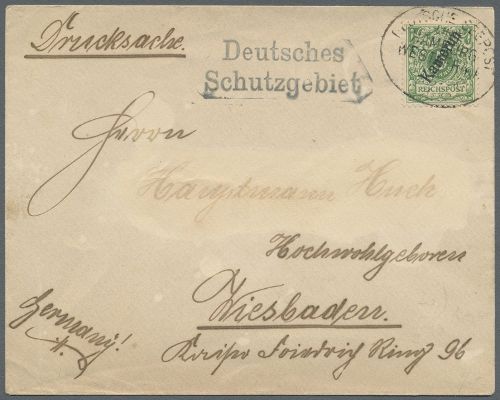 Drucksache.
Deutsches
Schutzgebiet
Kamerun
REICHSPOST
Herrn
Hauptmann Huch
Hochwohlgeboren
Wiesbaden.
Germany!
Kaiser Friedrich Ring 96